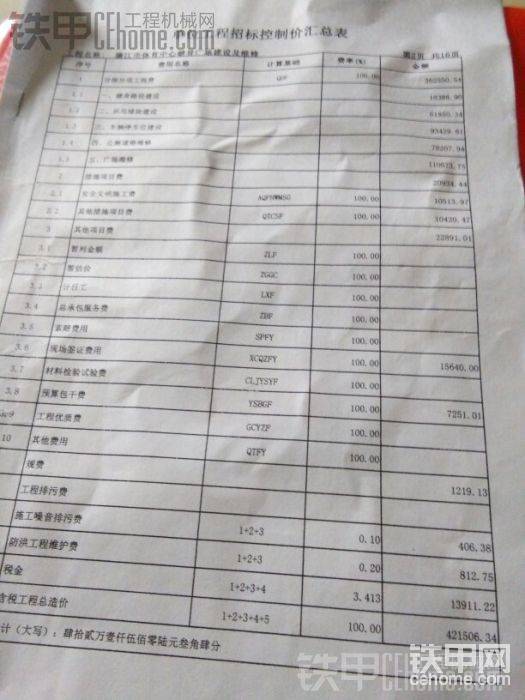 铁甲 工程机械网
CEhome.com
工程招标控制价汇总表
第2页 共16页
序号 费用名称 计算基础 费率(%) 金额
1 分部分项工程费 QDF 100.00 362550.54
1.1 一、健身路径建设 16386.90
1.2 61850.34
1.3 三、车辆停车位建设 93429.61
1.4 78207.94
五、广场维修 110673.75
2 措施项目费 20934.44
2.1 安全文明施工费 AQFSWMSG 100.00 10513.97
2.2 其他措施项目费 QTCSF 100.00 10420.47
3 其他项目费 22891.01
3.1 暂列金额 ZLF 100.00
3.2 暂估价 ZGGC 100.00
3.3 计日工 LXF 100.00
3.4 总承包服务费 ZBF 100.00
3.5 索赔费用 SPFY 100.00
3.6 现场签证费用 XCQZFY 100.00 15640.00
3.7 材料检验试验费 CLJYSYF 100.00
3.8 预算包干费 YSBGF 100.00 7251.01
9 工程优质费 GCYZF 100.00
10 其他费用 QTFY 100.00
规费 1219.13
工程排污费
施工噪音排污费 1+2+3 0.10 406.38
防洪工程维护费 1+2+3 0.20 812.75
税金 1+2+3+4 3.413 13911.22
含税工程总造价 1+2+3+4+5 100.00 421506.34
计（大写）：肆拾贰万壹仟伍佰零陆元叁角肆分
铁甲 工程机械网
CEhome.com
铁甲网
cehome.com